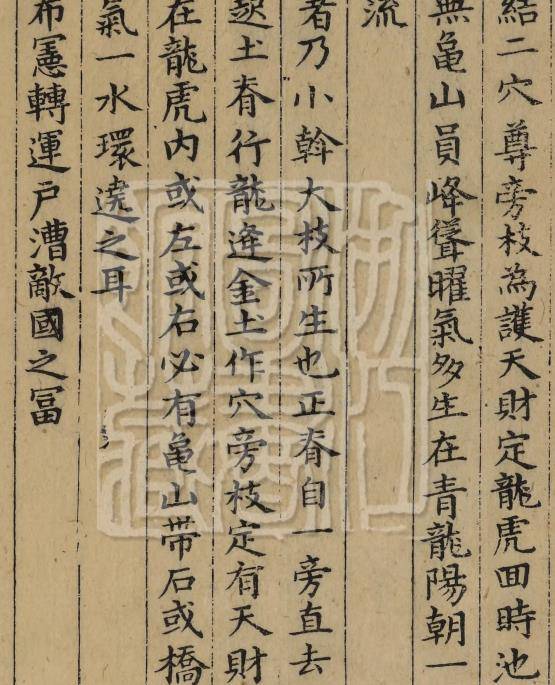 結二穴尊旁枝為護天財定龍虎回時池
無龜山員峰聳曜氣多生在青龍陽朝一
流
者乃小榦大枝所生也正脊自一旁直去
起土脊行龍逢金土作穴旁枝定有天財
在龍虎內或左或右必有龜山带石或橋
氣一水環遶之耳
布憲轉運戶漕敵國之冨